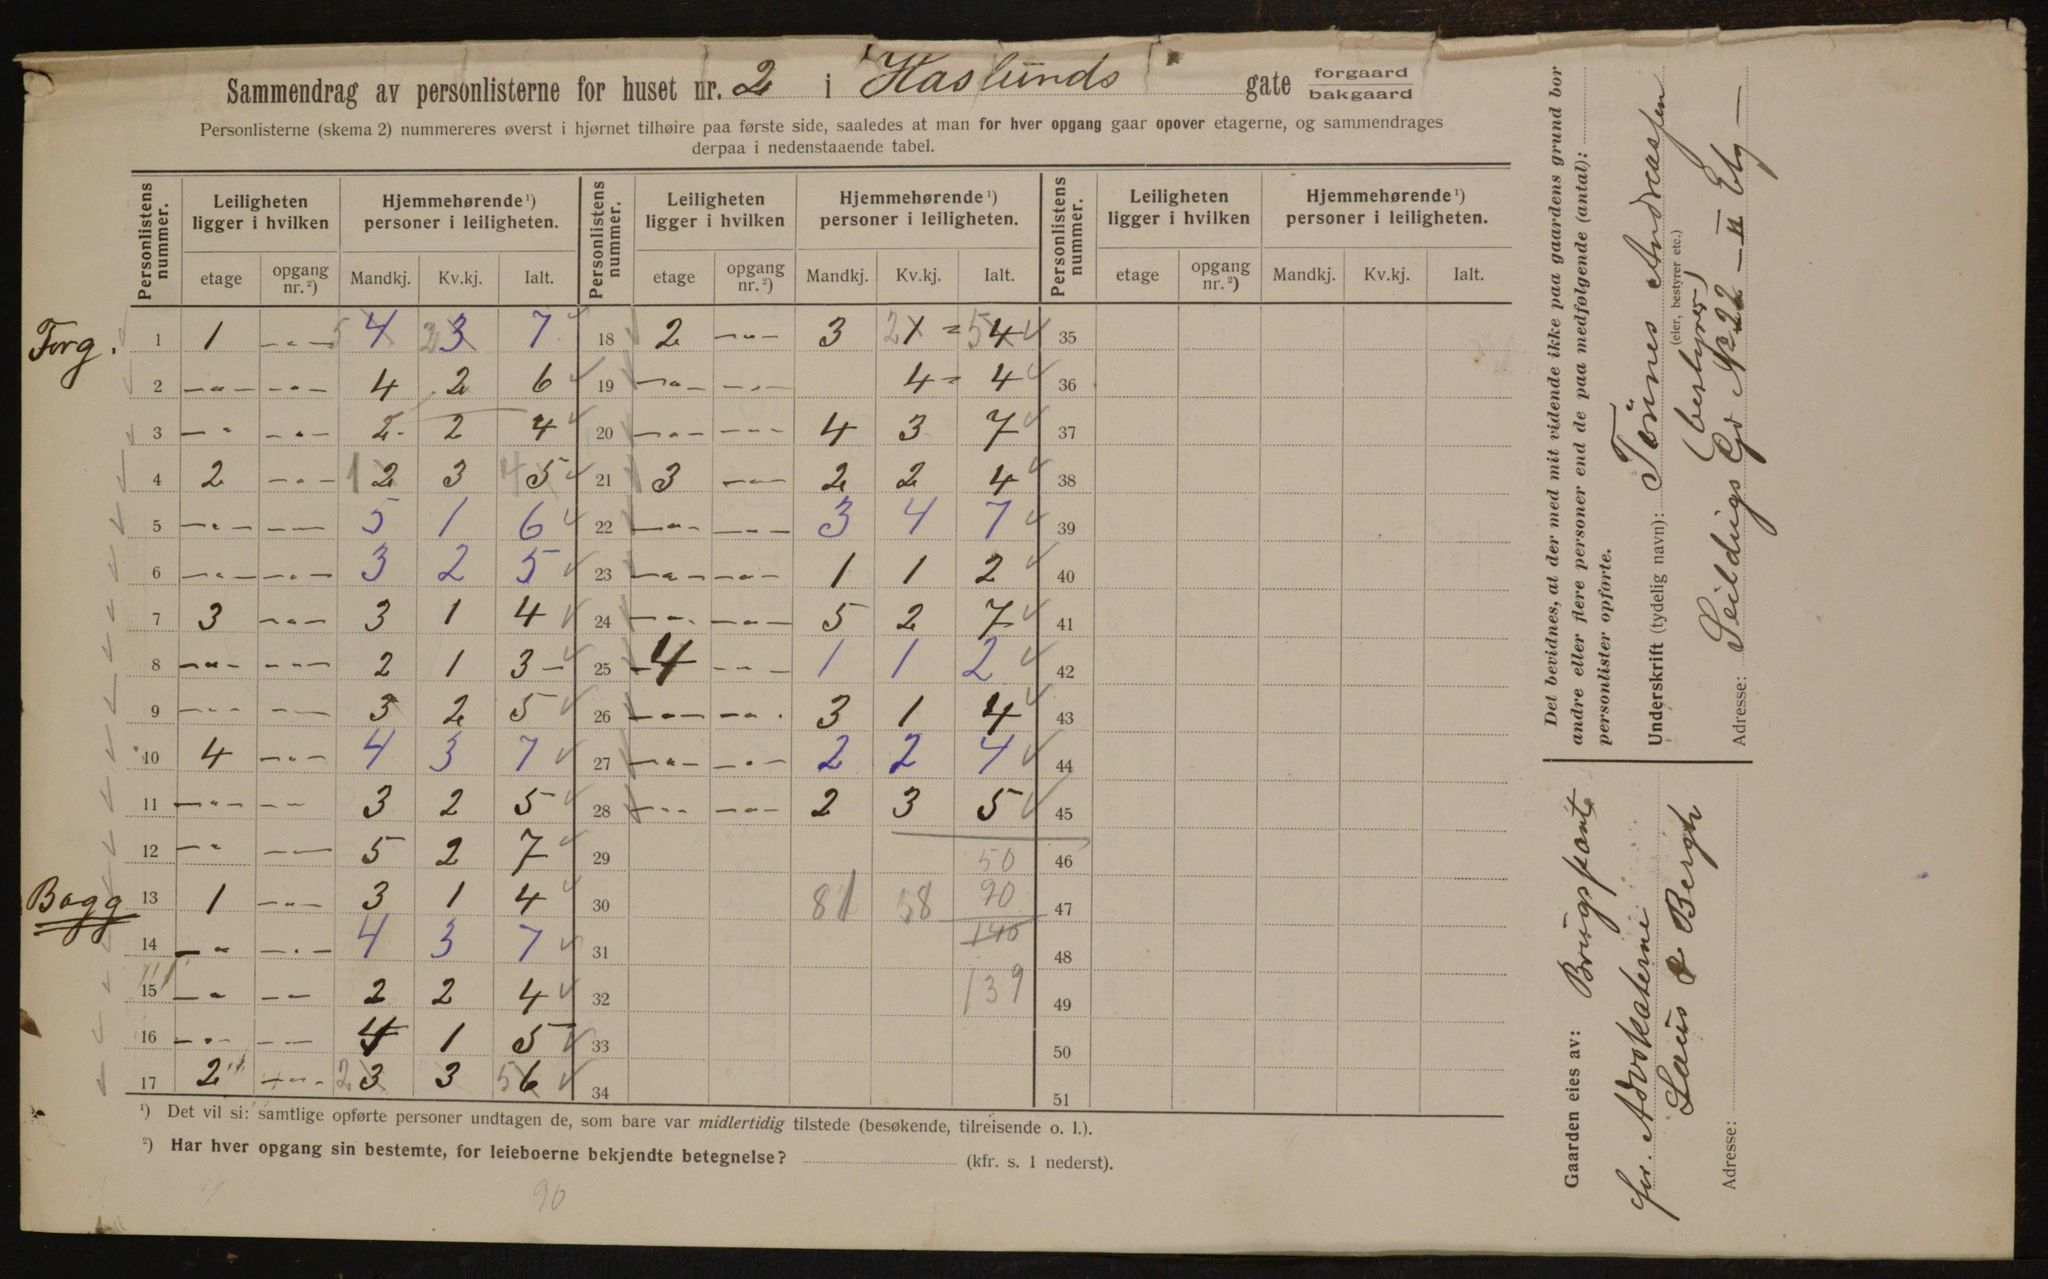 Sammendrag av personlisterne for huset nr. 2 i Haslunds gate forgaard bakgaard
Personlisterne (skema 2) nummereres øverst i hjørnet tilhøire paa første side, saaledes at man for hver opgang gaar opover etagerne, og sammendrages
derpaa i nedenstaaende tabel.
Personlistens nummer. Leiligheten ligger i hvilken etage opgang nr. ²) Hjemmehørende ¹) personer i leiligheten. Mandkj. Kv.kj. Ialt.
Personlistens nummer. Leiligheten ligger i hvilken etage opgang nr. ²) Hjemmehørende ¹) personer i leiligheten. Mandkj. Kv.kj. Ialt.
Personlistens nummer. Leiligheten ligger i hvilken etage opgang nr. ²) Hjemmehørende ¹) personer i leiligheten. Mandkj. Kv.kj. Ialt.
Forg. 1 1 -"- 5 4 2 3 7 18 2 -"- 3 2 1 = 5 4 35
2 -"- -"- 4 2 6 19 -"- -"- 4 = 4 36
3 -"- -"- 2 2 4 20 -"- -"- 4 3 7 37
4 2 -"- 1 2 3 4 5 21 3 -"- 2 2 4 38
5 -"- -"- 5 1 6 22 -"- -"- 3 4 7 39
6 -"- -"- 3 2 5 23 -"- -"- 1 1 2 40
7 3 -"- 3 1 4 24 -"- -"- 5 2 7 41
8 -"- -"- 2 1 3 25 4 -"- 1 1 2 42
9 -"- -"- 3 2 5 26 -"- -"- 3 1 4 43
10 4 -"- 4 3 7 27 -"- -"- 2 2 4 44
11 -"- -"- 3 2 5 28 -"- -"- 2 3 5 45
12 -"- -"- 5 2 7 29 50 46
Bagg 13 1 -"- 3 1 4 30 81 58 90 47
14 -"- -"- 4 3 7 31 140 48
15 -"- -"- 2 2 4 32 139 49
16 -"- -"- 4 1 5 33 50
17 2 -"- 2 3 3 5 6 34 51
¹) Det vil si: samtlige opførte personer undtagen de, som bare var midlertidig tilstede (besøkende, tilreisende o. l.).
²) Har hver opgang sin bestemte, for leieboerne bekjendte betegnelse? (kfr. s. 1 nederst).
90
Det bevidnes, at der med mit vidende ikke paa gaardens grund bor
andre eller flere personer end de paa medfølgende (antal):
personlister opførte.
Underskrift (tydelig navn): Tönnes Andreassen
(eier, bestyrer etc.)
(bestyrer)
Adresse: Seildugs Gd No 22 - II Etg -
Gaarden eies av: Brugspant
for. Advokaterne
Laus & Bergh
Adresse: